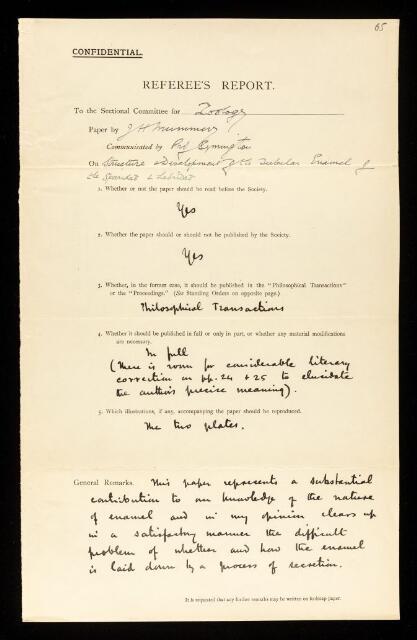 65
CONFIDENTIAL.
REFEREE'S REPORT.
To the Sectional Committee for Zoology
Paper by J H Mummery
Communicated by Prof Symington
On Structure & Development of the Tubular Enamel of
the Sparidae & Labridae
1. Whether or not the paper should be read before the Society.
Yes
2. Whether the paper should or should not be published by the Society.
Yes
3. Whether, in the former case, it should be published in the "Philosophical Transactions"
or the "Proceedings." (See Standing Orders on opposite page.)
Philosophical Transactions
4. Whether it should be published in full or only in part, or whether any material modifications
are necessary.
In full
(There is room for considerable literary
correction on pp. 24 & 25 to elucidate
the author's precise meaning).
5. Which illustrations, if any, accompanying the paper should be reproduced.
The two plates.
General Remarks. This paper represents a substantial
contribution to our knowledge of the nature
of enamel and in my opinion clears up
in a satisfactory manner the difficult
problem of whether and how the enamel
is laid down by a process of secretion.
It is requested that any further remarks may be written on foolscap paper.